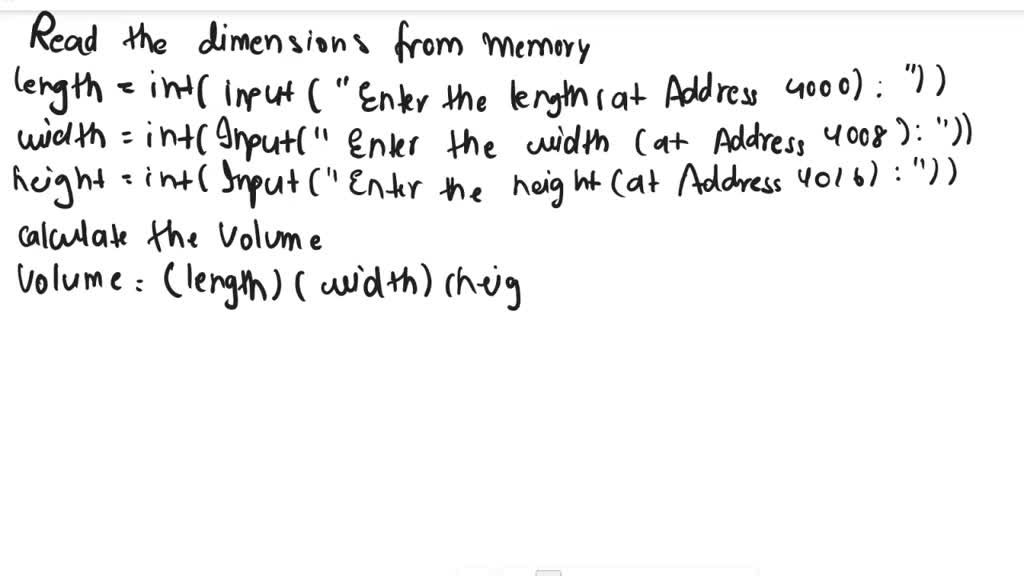 Read the dimensions from memory
length = int( input ( "Enter the length (at Address 4000) : "))
width = int( Input( " Enter the width (at Address 4008 ) : "))
height = int( Input ( " Enter the height (at Address 4016) : "))
calculate the Volume
Volume = (length) ( width) (heig